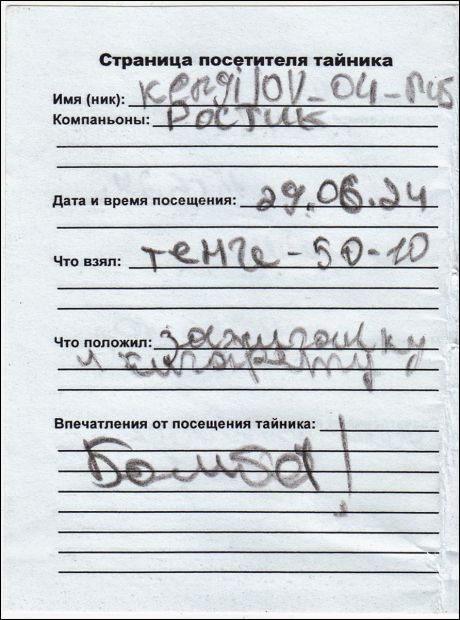 Страница посетителя тайника
Имя (ник):
Компаньоны: Ростик
Дата и время посещения: 29.06.24
Что взял: тенге-50-10
Что положил: зажигалку
и сигарету
Впечатления от посещения тайника:
Бомба!